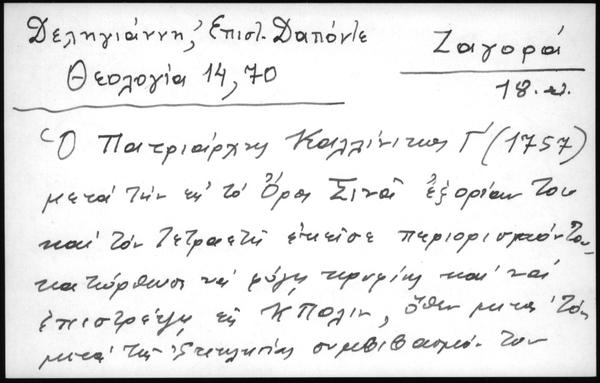 Δεληγιάννη, Επιστ. Δαπόντε
Θεολογία 14, 70
Ζαγορά
18. αι.
Ὁ Πατριάρχης Καλλίνικος Γ' (1757)
μετά τήν εἰς τό Ὄρος Σινᾶ ἐξορίαν του
καί τόν τετραετῆ ἐκεῖσε περιορισμόν του,
κατώρθωσε νά φύγῃ κρυφίως καί νά
ἐπιστρέψῃ εἰς Κ/Πολιν, ὅθεν μετά τόν
μετά τῆς Ἐκκλησίας συμβιβασμόν του